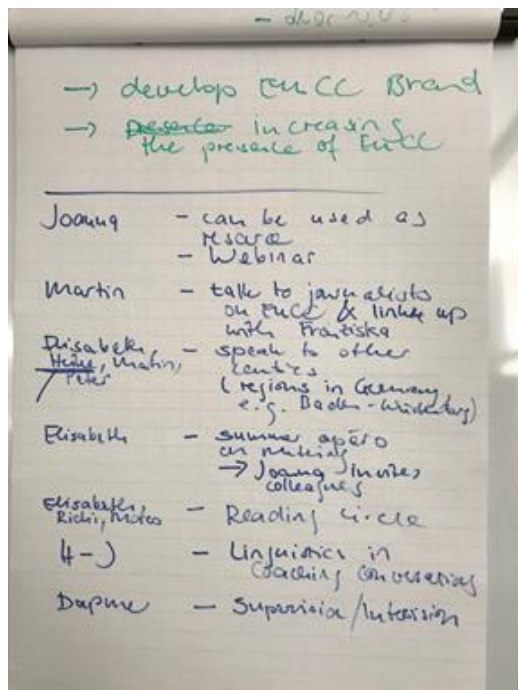 → develop EMCC Brand
→ Presence increasing
the presence of EMCC
Joanna - can be used as
resource
- Webinar
Martin - talk to journalists
on EMCC & linked up
with Franziska
Elisabeth, - speak to other
Heike, Martin, centres
Peter (regions in Germany
e.g. Baden-Württemberg)
Elisabeth - summer apéro
on
→ Joanna invites
colleagues
Elisabeth,
Richi, - Reading circle
4-J - Linguistics in
Coaching Conversations
Daphne - Supervision/Intervision